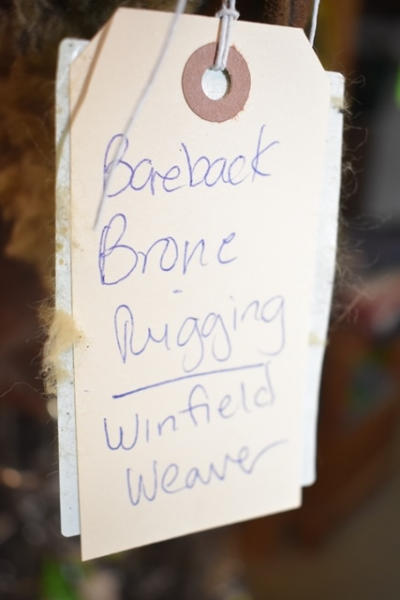 Bareback
Bronc
Rigging
Winfield
Weaver